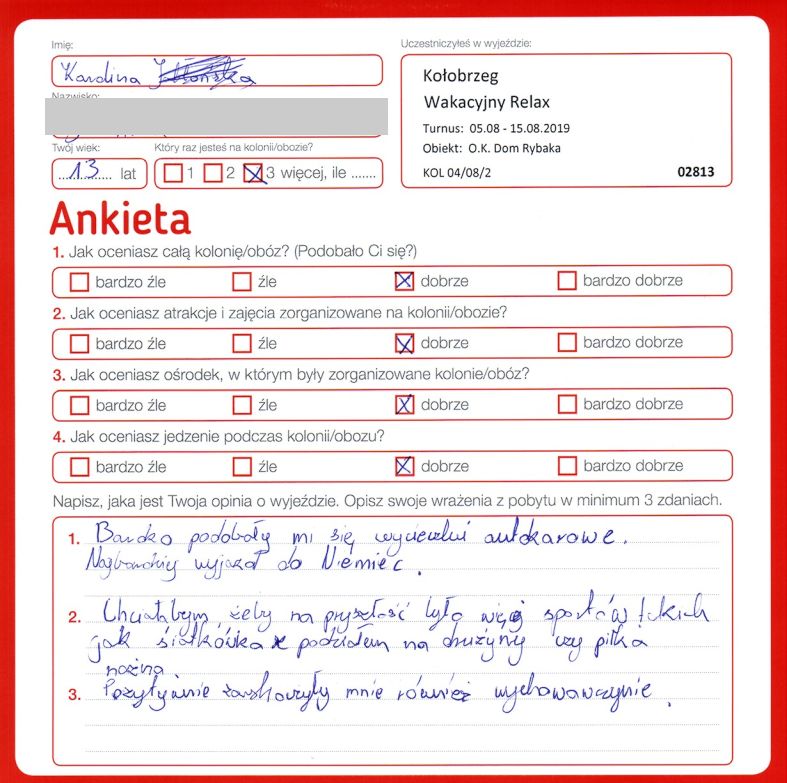 Imię:
Uczestniczyłeś w wyjeździe:
Karolina
Kołobrzeg
Wakacyjny Relax
Turnus: 05.08 - 15.08.2019
Obiekt: O.K. Dom Rybaka
KOL 04/08/2 02813
Nazwisko:
Twój wiek: Który raz jesteś na kolonii/obozie?
13 lat 1 2 3 więcej, ile .......
Ankieta
1. Jak oceniasz całą kolonię/obóz? (Podobało Ci się?)
bardzo źle źle dobrze bardzo dobrze
2. Jak oceniasz atrakcje i zajęcia zorganizowane na kolonii/obozie?
bardzo źle źle dobrze bardzo dobrze
3. Jak oceniasz ośrodek, w którym były zorganizowane kolonie/obóz?
bardzo źle źle dobrze bardzo dobrze
4. Jak oceniasz jedzenie podczas kolonii/obozu?
bardzo źle źle dobrze bardzo dobrze
Napisz, jaka jest Twoja opinia o wyjeździe. Opisz swoje wrażenia z pobytu w minimum 3 zdaniach.
1. Bardzo podobały mi się wycieczki autokarowe.
Najbardziej wyjazd do Niemiec.
2. Chciałbym, żeby na przyszłość było więcej sportów takich
jak siatkówka z podziałem na drużyny czy piłka
nożna.
3. Pozytywnie zaskoczyły mnie również wychowawczynie.